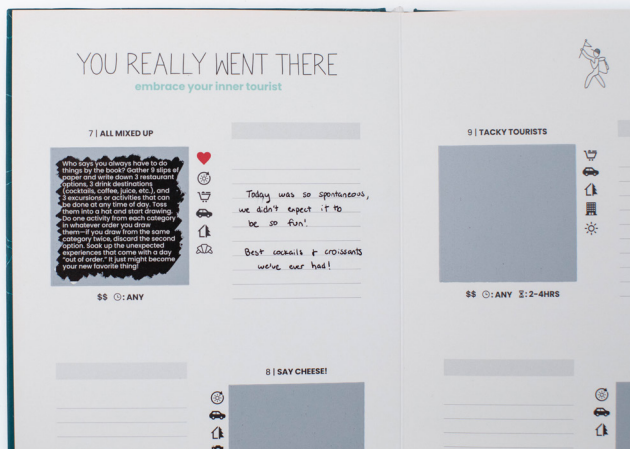 YOU REALLY WENT THERE
embrace your inner tourist
7 | ALL MIXED UP
Who says you always have to do
things by the book? Gather 9 slips of
paper and write down 3 restaurant
options, 3 drink destinations
(cocktails, coffee, juice, etc.), and
3 excursions or activities that can
be done at any time of day. Toss
them into a hat and start drawing.
Do one activity from each category
in whatever order you draw
them—if you draw from the same
category twice, discard the second
option. Soak up the unexpected
experiences that come with a day
"out of order." It just might become
your new favorite thing!
$$ : ANY
Today was so spontaneous,
we didn't expect it to
be so fun!
Best cocktails & croissants
we've ever had!
8 | SAY CHEESE!
9 | TACKY TOURISTS
$$ : ANY : 2-4HRS